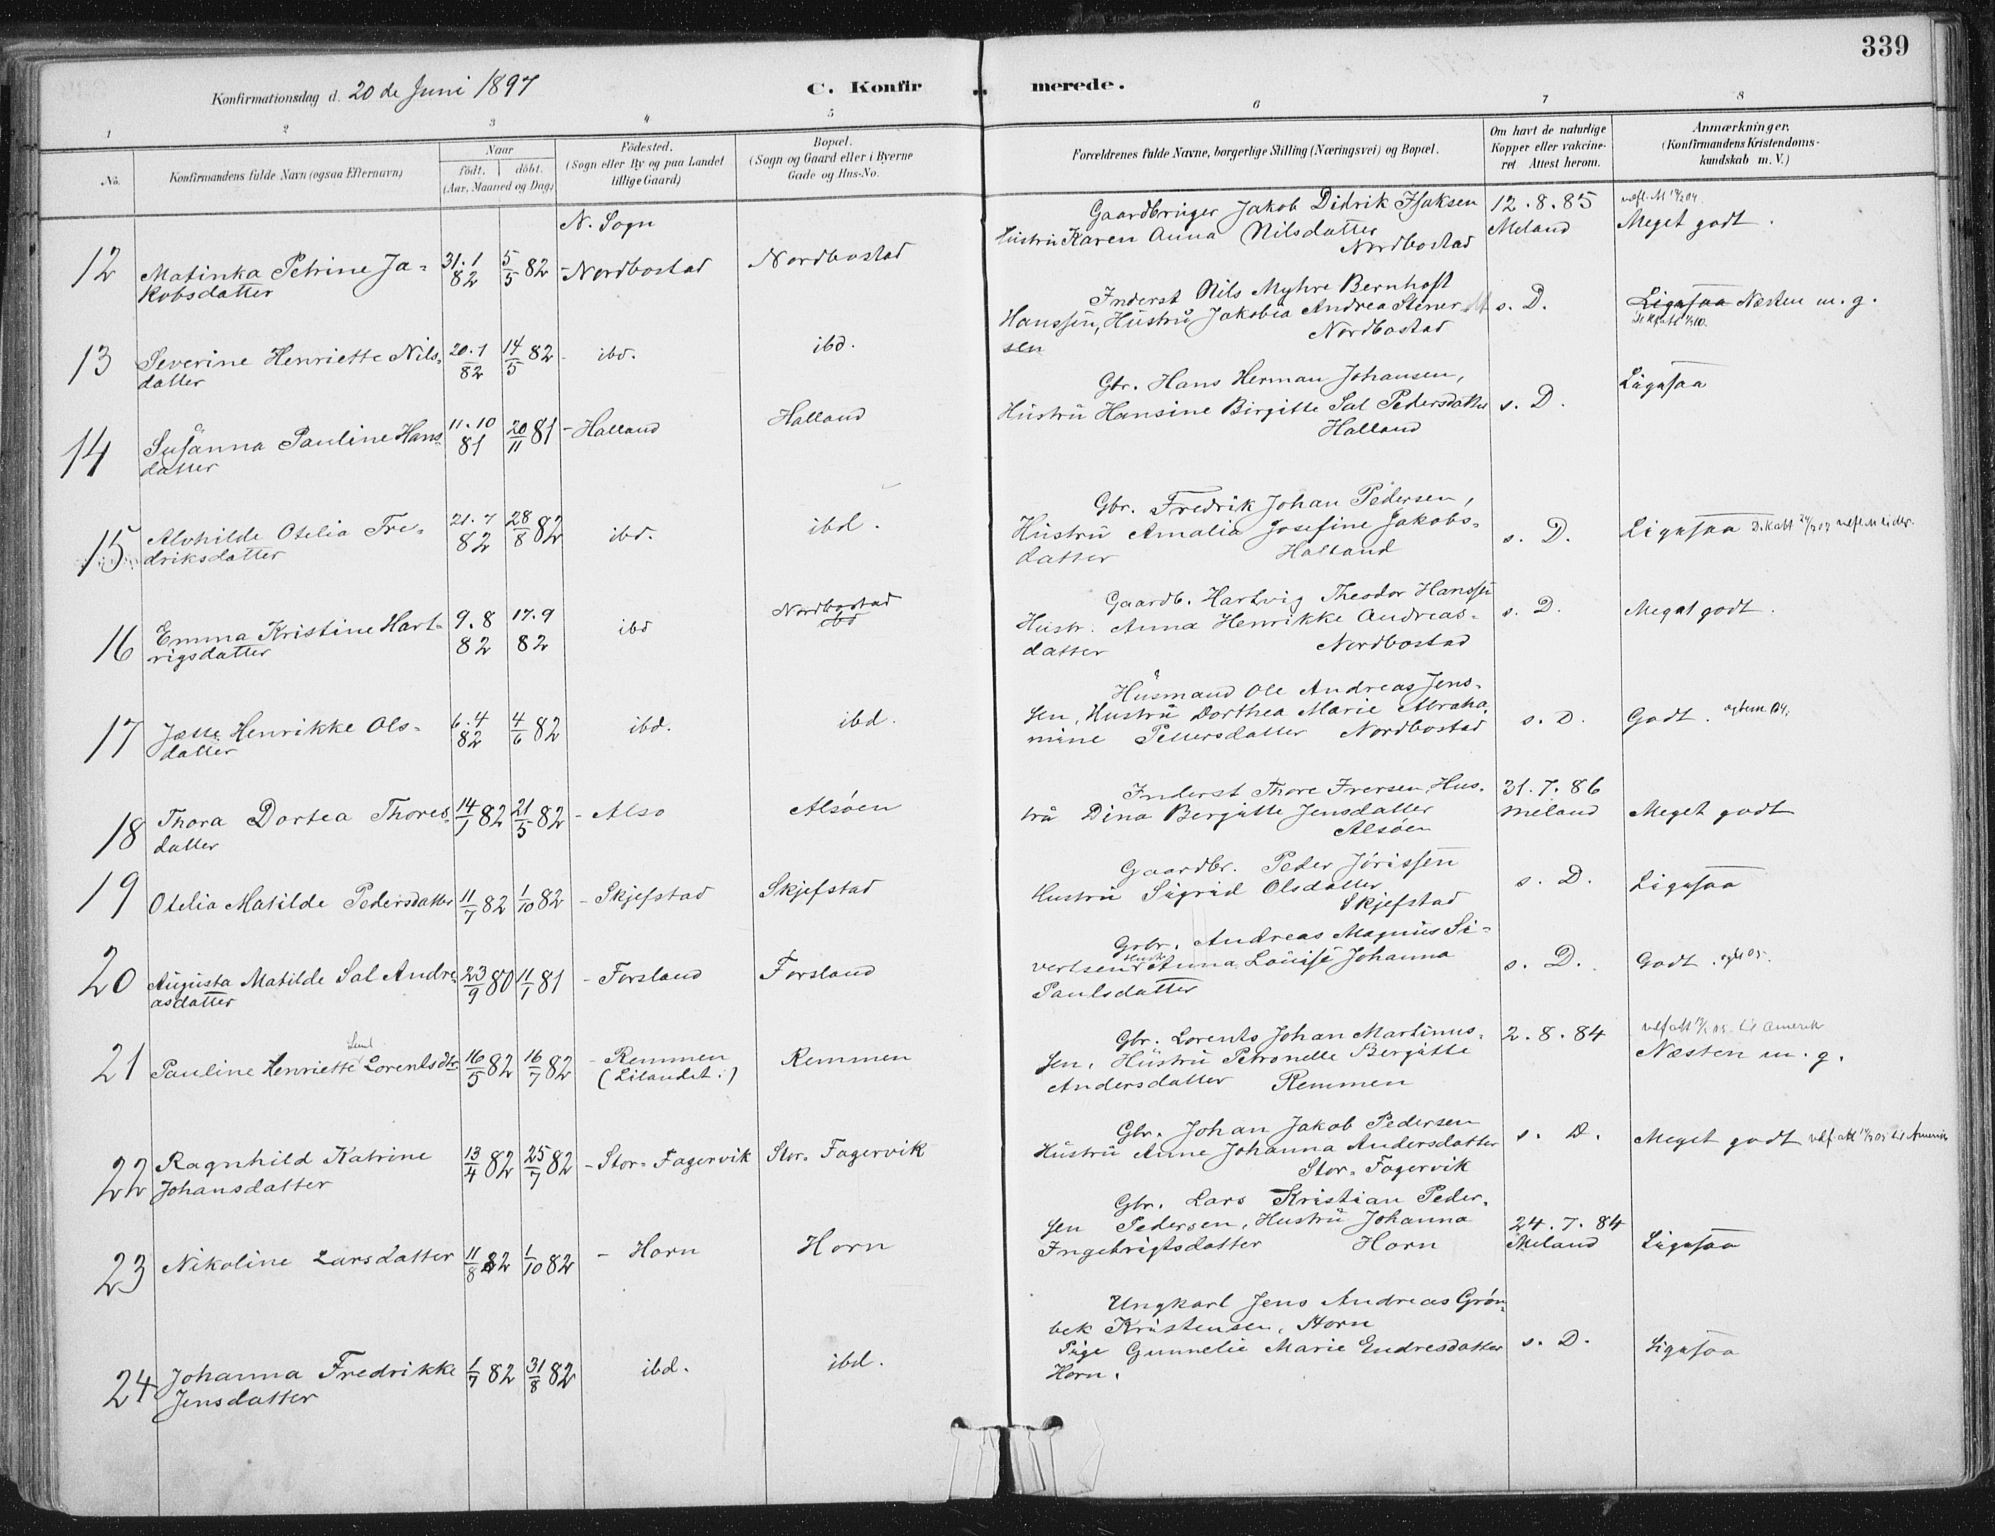 339
Konfirmationsdag d. 20 de Juni 1897
C. Konfirmerede.
1 2 3 4 5 6 7 8
No.
Konfirmandens fulde Navn (ogsaa Efternavn)
Naar
födt. döbt.
(Aar, Maaned og Dag)
Födested.
(Sogn eller By og paa Landet
tillige Gaard)
Bopæl.
(Sogn og Gaard eller i Byerne
Gade og Hus-No.
Forældrenes fulde Navne, borgerlige Stilling (Næringsvei) og Bopæl.
Om havt de naturlige
Kopper eller vakcine-
ret Attest herom.
Anmærkninger.
(Konfirmandens Kristendoms-
kundskab m. V.)
N. Sogn
12 Matinka Petrine Ja-
kobsdatter
31.1 82
5/5 82
- Nordbostad
Nordbostad
Gaardbruger Jakob Didrik Isaksen
Hustru Karen Anna Nilsdatter
Nordbostad
12.8.85
Meland
Meget godt.
13 Severine Henriette Nils-
datter
20.1 82
14/5 82
- ibd.
ibd.
Inderst Nils Myhre Bernhoft
Hanssen, Hustru Jakobia Andrea Stener
sen Nordbostad
s. D.
Ligesaa Næsten m. g.
14 Susanna Pauline Hans-
datter
11.10 81
20/11 81
- Halland
Halland
Gbr. Hans Herman Johansen,
Hustru Hansine Birgitte Sal Pedersdatter
Halland
s. D.
Ligesaa
15 Alvhilde Otelia Fre-
driksdatter
21.7 82
28/8 82
ibd.
ibd.
Gbr. Fredrik Johan Pedersen,
Hustru Amalia Josefine Jakobs-
datter Halland
s. D.
Ligesaa
16 Emma Kristine Hart-
vigsdatter
9.8 82
17.9 82
ibd
Nordbostad
ibd
Gaardb. Hartvig Theodor Hanssen
Hustr. Anna Henrikke Andreas-
datter Nordbostad
s. D.
Meget godt.
17 Jette Henrikke Ols-
datter
6.4 82
4/6 82
ibd.
ibd.
Husmand Ole Andreas Jens-
sen, Hustru Dorthea Marie Abraha-
mine Pettersdatter Nordbostad
s. D.
Godt.
18 Thora Dortea Thores-
datter
14/1 82
21/5 82
- Alsø
Alsøen
Inderst Thore Iversen, Hus-
tru Dina Bergitte Jensdatter
Alsøen
31.7.86
Meland
Meget godt
19 Otelia Matilde Pedersdatter
11/7 82
1/10 82
- Skjefstad
Skjefstad
Gaardbr. Peder Jörissen
Hustru Sigrid Olsdatter
Skjefstad
s. D.
Ligesaa
20 Augusta Matilde Sal Andre-
asdatter
23/9 80
11/1 81
- Forsland
Forsland
Grbr. Andreas Magnus Si-
vertsen Hustr. Anna Louise Johanna
Paulsdatter
s. D.
Godt.
21 Pauline Henriette Lorentsdtr.
16/5 82
16/7 82
- Remmen
(Lilandet.)
Remmen
Gbr. Lorents Johan Martinus-
sen, Hustru Petronelle Bergitte
Andersdatter Remmen
2.8.84
Næsten m. g.
22 Ragnhild Katrine
Johansdatter
13/4 82
25/7 82
- Stor-Fagervik
Stor-Fagervik
Gbr. Johan Jakob Pedersen
Hustru Anne Johanna Andersdatter
Stor-Fagervik
s. D.
Meget godt
23 Nikoline Larsdatter
11/8 82
1/10 82
- Horn
Horn
Gbr. Lars Kristian Peder-
sen Pedersen, Hustru Johanna
Ingebrigtsdatter Horn
24.7.84
Meland
Ligesaa
24 Johanna Fredrikke
Jensdatter
1/7 82
31/8 82
ibd.
ibd.
Ungkarl Jens Andreas Grøn-
bek Kristensen, Horn
Pige Gunnelie Marie Endresdatter
Horn.
s. D.
Ligesaa